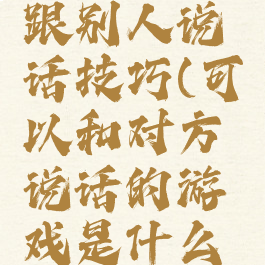 跟别人说
话技巧(可
以和对方
说话的游
戏是什么